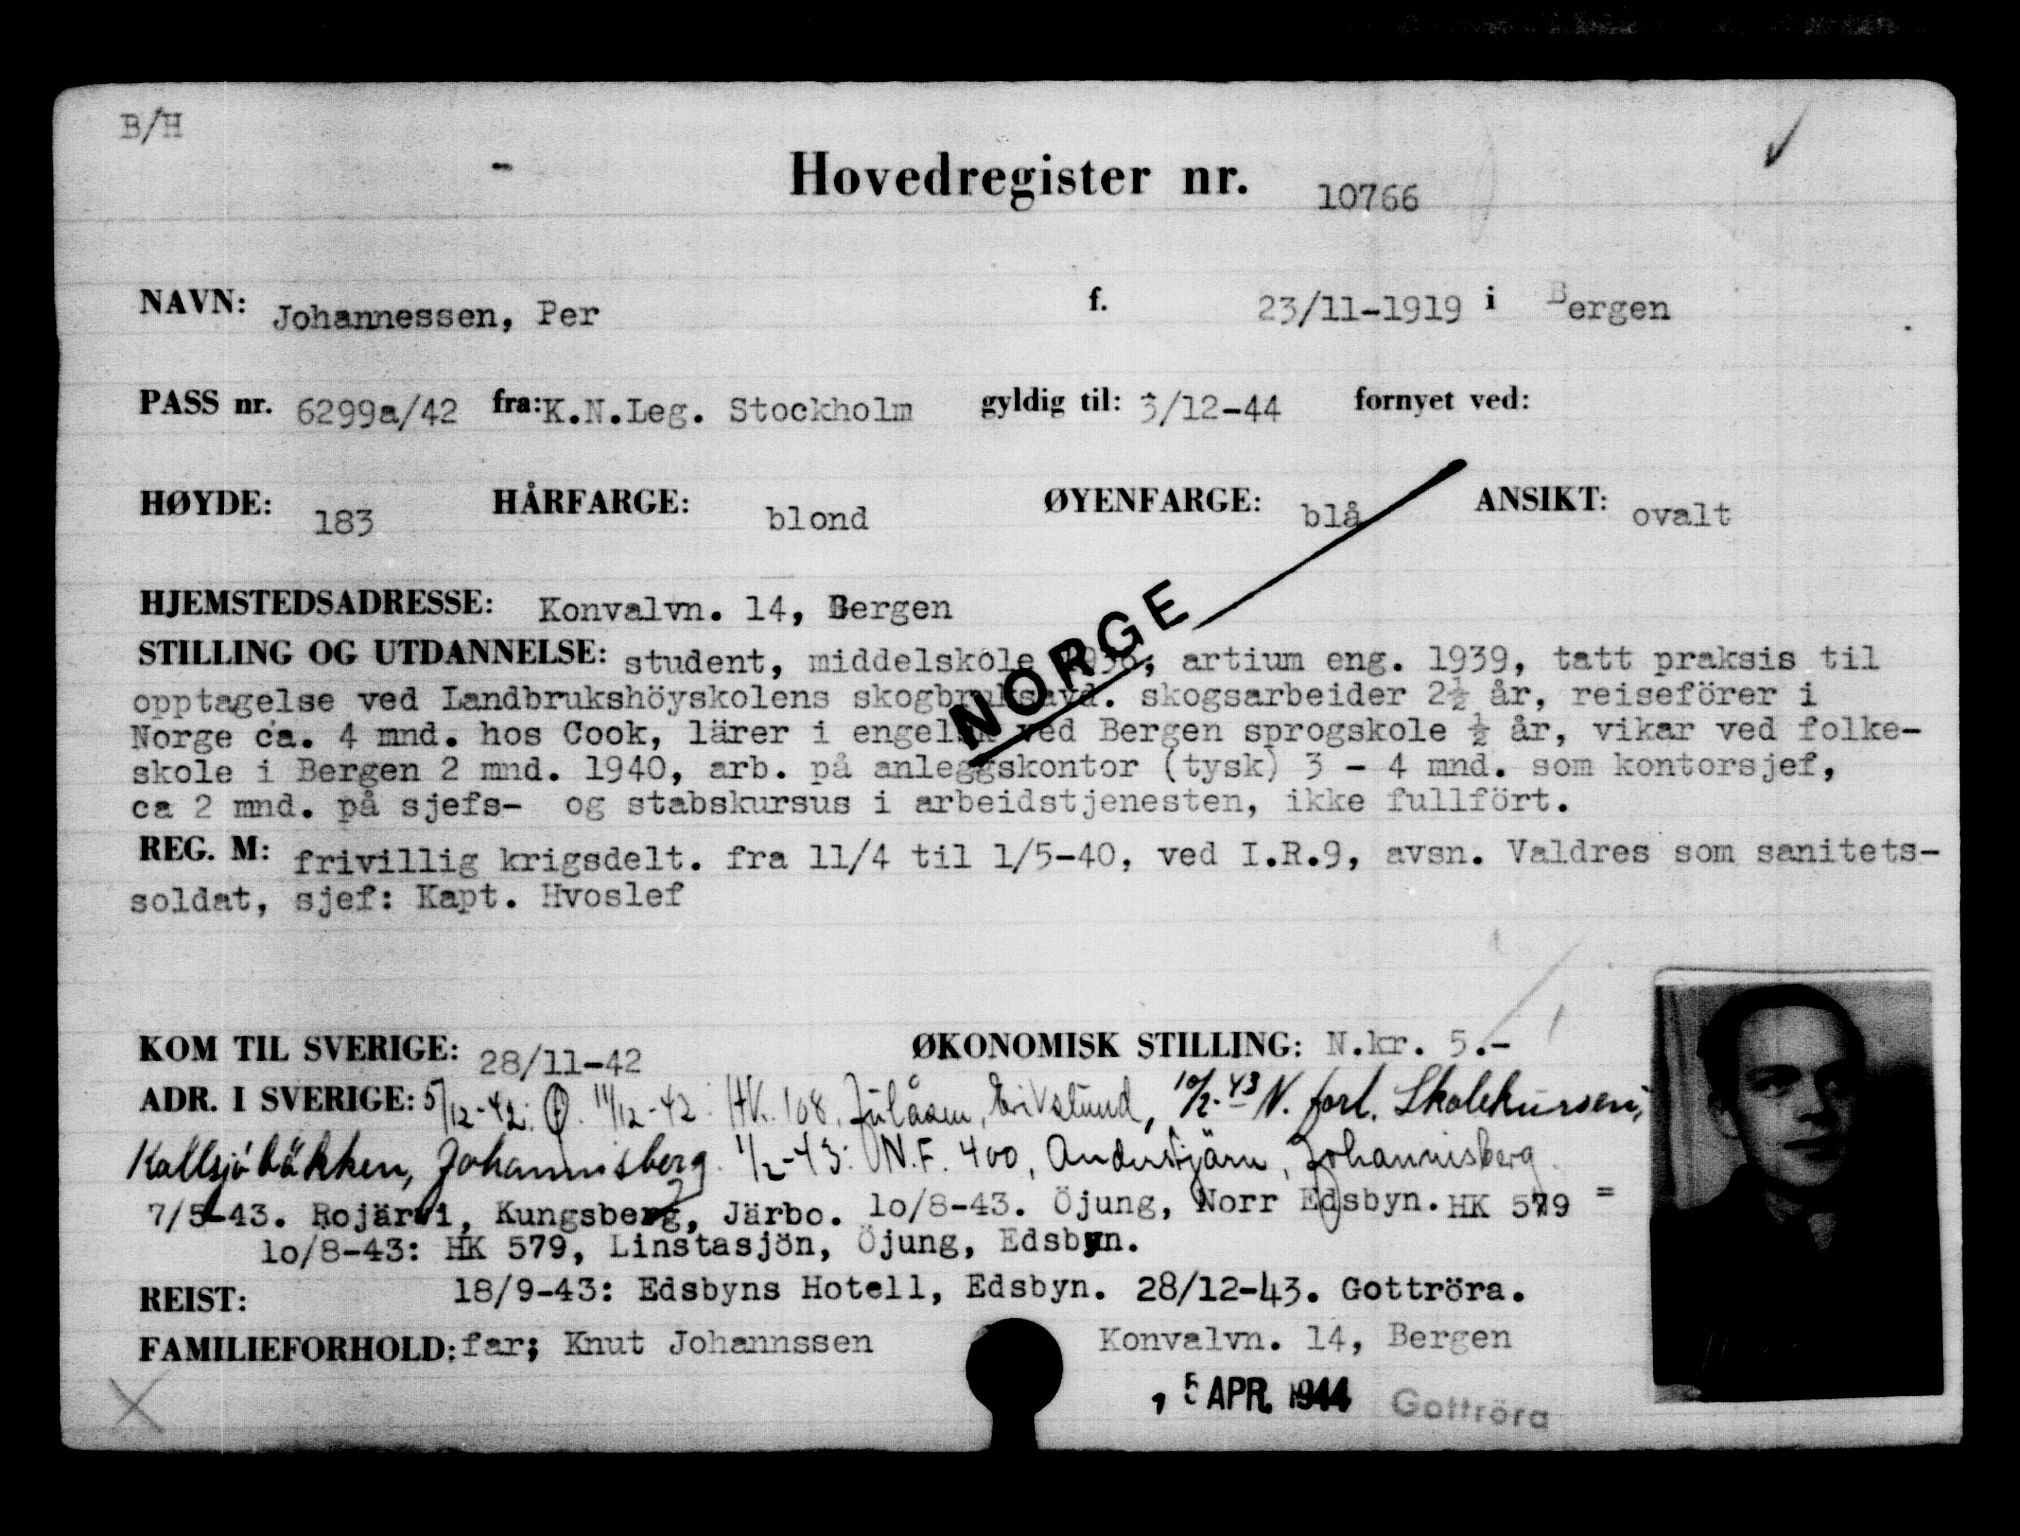 B/H
Hovedregister nr. 10766
NAVN: Johannessen, Per f. 23/11-1919 i Bergen
PASS nr. 6299a/42 fra: K.N.Leg. Stockholm gyldig til: 3/12-44 fornyet ved:
HØYDE: 183 HÅRFARGE: blond ØYENFARGE: blå ANSIKT: ovalt
NORGE
HJEMSTEDSADRESSE: Konvalvn. 14, Bergen
STILLING OG UTDANNELSE: student, middelskole 1936, artium eng. 1939, tatt praksis til
opptagelse ved Landbrukshöyskolens skogbruksavd. skogsarbeider 2½ år, reiseförer i
Norge ca. 4 mnd. hos Cook, lärer i engelsk ved Bergen sprogskole ½ år, vikar ved folke-
skole i Bergen 2 mnd. 1940, arb. på anleggskontor (tysk) 3 - 4 mnd. som kontorsjef,
ca 2 mnd. på sjefs- og stabskursus i arbeidstjenesten, ikke fullfört.
REG. M: frivillig krigsdelt. fra 11/4 til 1/5-40, ved I.R.9, avsn. Valdres som sanitets-
soldat, sjef: Kapt. Hvoslef
KOM TIL SVERIGE: 28/11-42 ØKONOMISK STILLING: N.kr. 5.-
ADR. I SVERIGE: 5/12-42: Ø. 11/12-42: HK. 108, Julåsen, Erikslund, 10/2-43 N. forl. Skolekursen,
Kallsjöbäkken, Johannisberg. 1/2-43: N.F. 400, Anderstjärn, Johannisberg.
7/5-43. Rojärvi, Kungsberg, Järbo. 1o/8-43. Öjung, Norr Edsbyn. HK 579 =
1o/8-43: HK 579, Linstasjön, Öjung, Edsbyn.
REIST: 18/9-43: Edsbyns Hotell, Edsbyn. 28/12-43. Gottröra.
FAMILIEFORHOLD: far; Knut Johannssen Konvalvn. 14, Bergen
, 5 APR. 1944 Gottröra